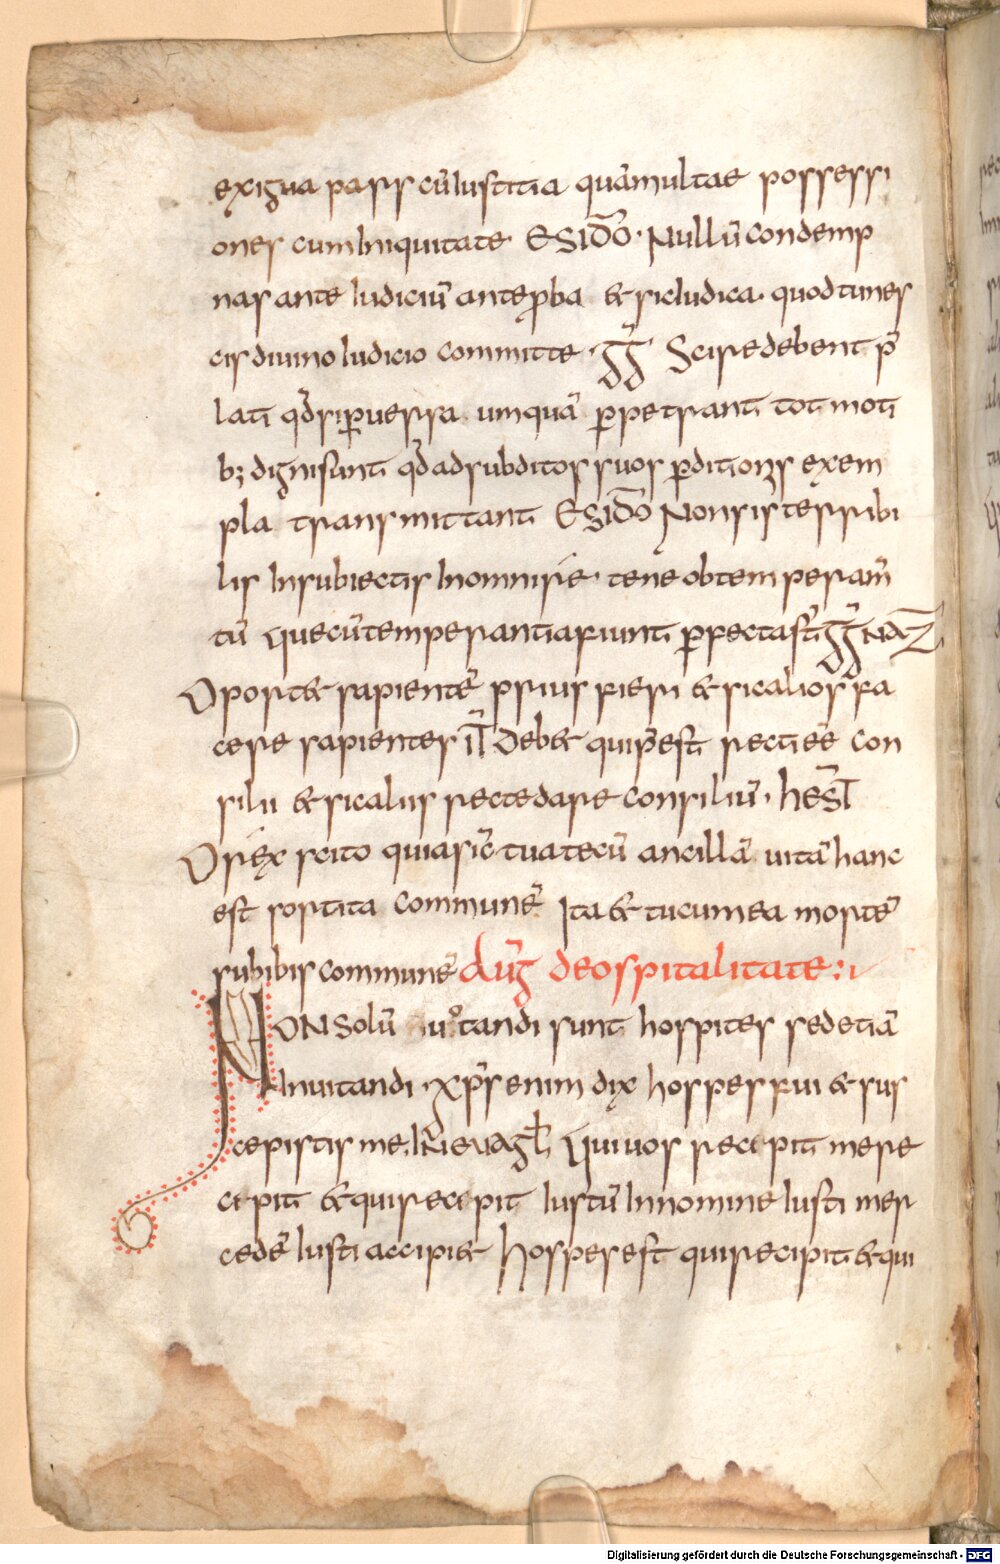 exigua pars cū iustitia quā multae possessi
ones cum iniquitate ESIDO͞R · Nullū condemp
nas ante iudiciū ante ꝓba & sic iudica · quod tu nes
cis diuino iudicio committe · g͞g Scire debent p̄
lati qd̄ si ꝑuersa umquā ꝑpetrant tot moti
bꝫ digni sunt qd̄ ad subditos suos ꝑditionis exem
pla transmittant ESIDO͞R Non sis terribi
lis In subiectis In omni sie · tene obtemperam̄
tū que cū temperantia fiunt ꝑfecta st̄ g͞g NAZ̄
Oport& sapientē prius fieri & sic alios fa
cere sapientes il̄ Deb& qui p̄est recti eē con
silii & sic aliis recte dare consiliū · hesl̄
O rex scito quia sic̄ tua tecū ancillā uitā hanc
est sortita communē Ita & tu cum ea mortē
subibis communē Auḡ de ospitalitate :
NON solū uotandi sunt hospites sed etiā
Inuitandi · xp̄s enim dix hospes fui & sus
cepistis me · Iñ euagl̄ Qui uos recepit me re
cepit & qui recepit Iustū In nomine Iusti mer
cedē Iusti accipi& Hospes est qui recipit & qui
Digitalisierung gefördert durch die Deutsche Forschungsgemeinschaft - DFG